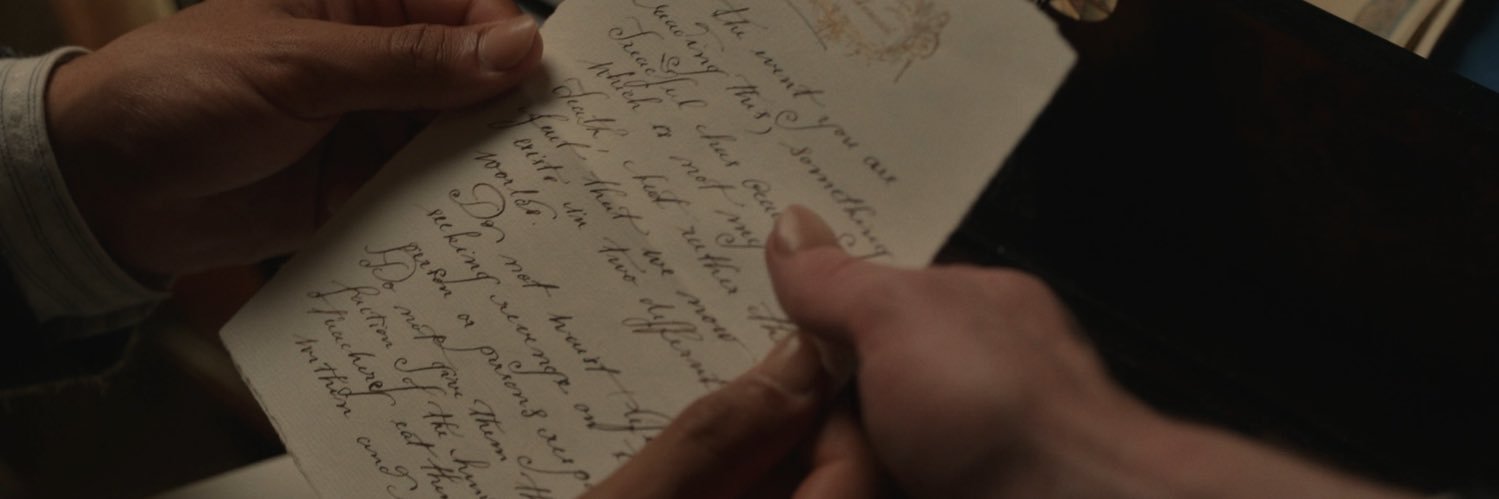 the event you are
reading this, something
dreadful has
which is not my
death, but rather the
fact that we now
exists in two different
worlds.
Do not waist
seeking revenge on
person or persons
Do not give them
fiction of the
treachery eat
within and